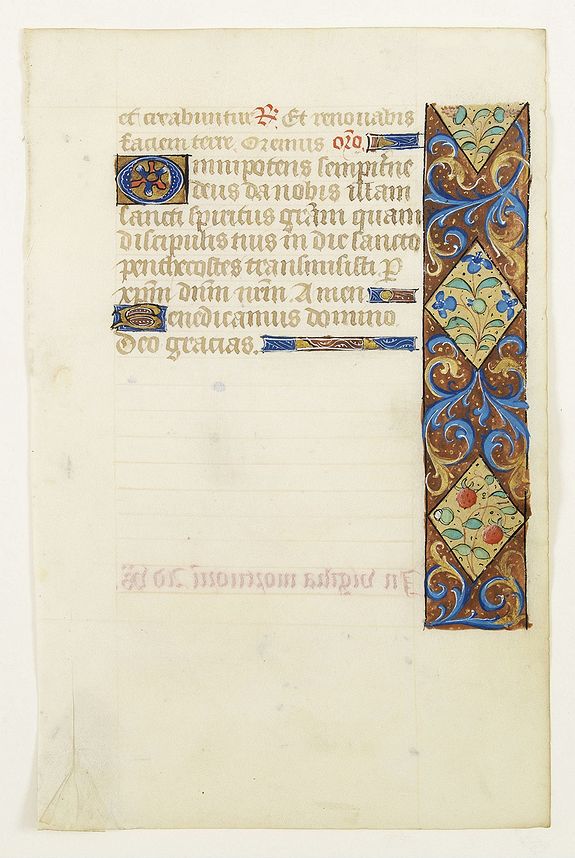 et creabuntur R Et renovabis
faciem terre. Oremus oro
Omnipotens sempitne
deus da nobis illam
sancti spiritus gram quam
discipulis tuis in die sancto
penthecostes transmisisti P
xpm dnm nrm. Amen
Benedicamus domino
Deo gracias.
In vigilia mortuorum Ad